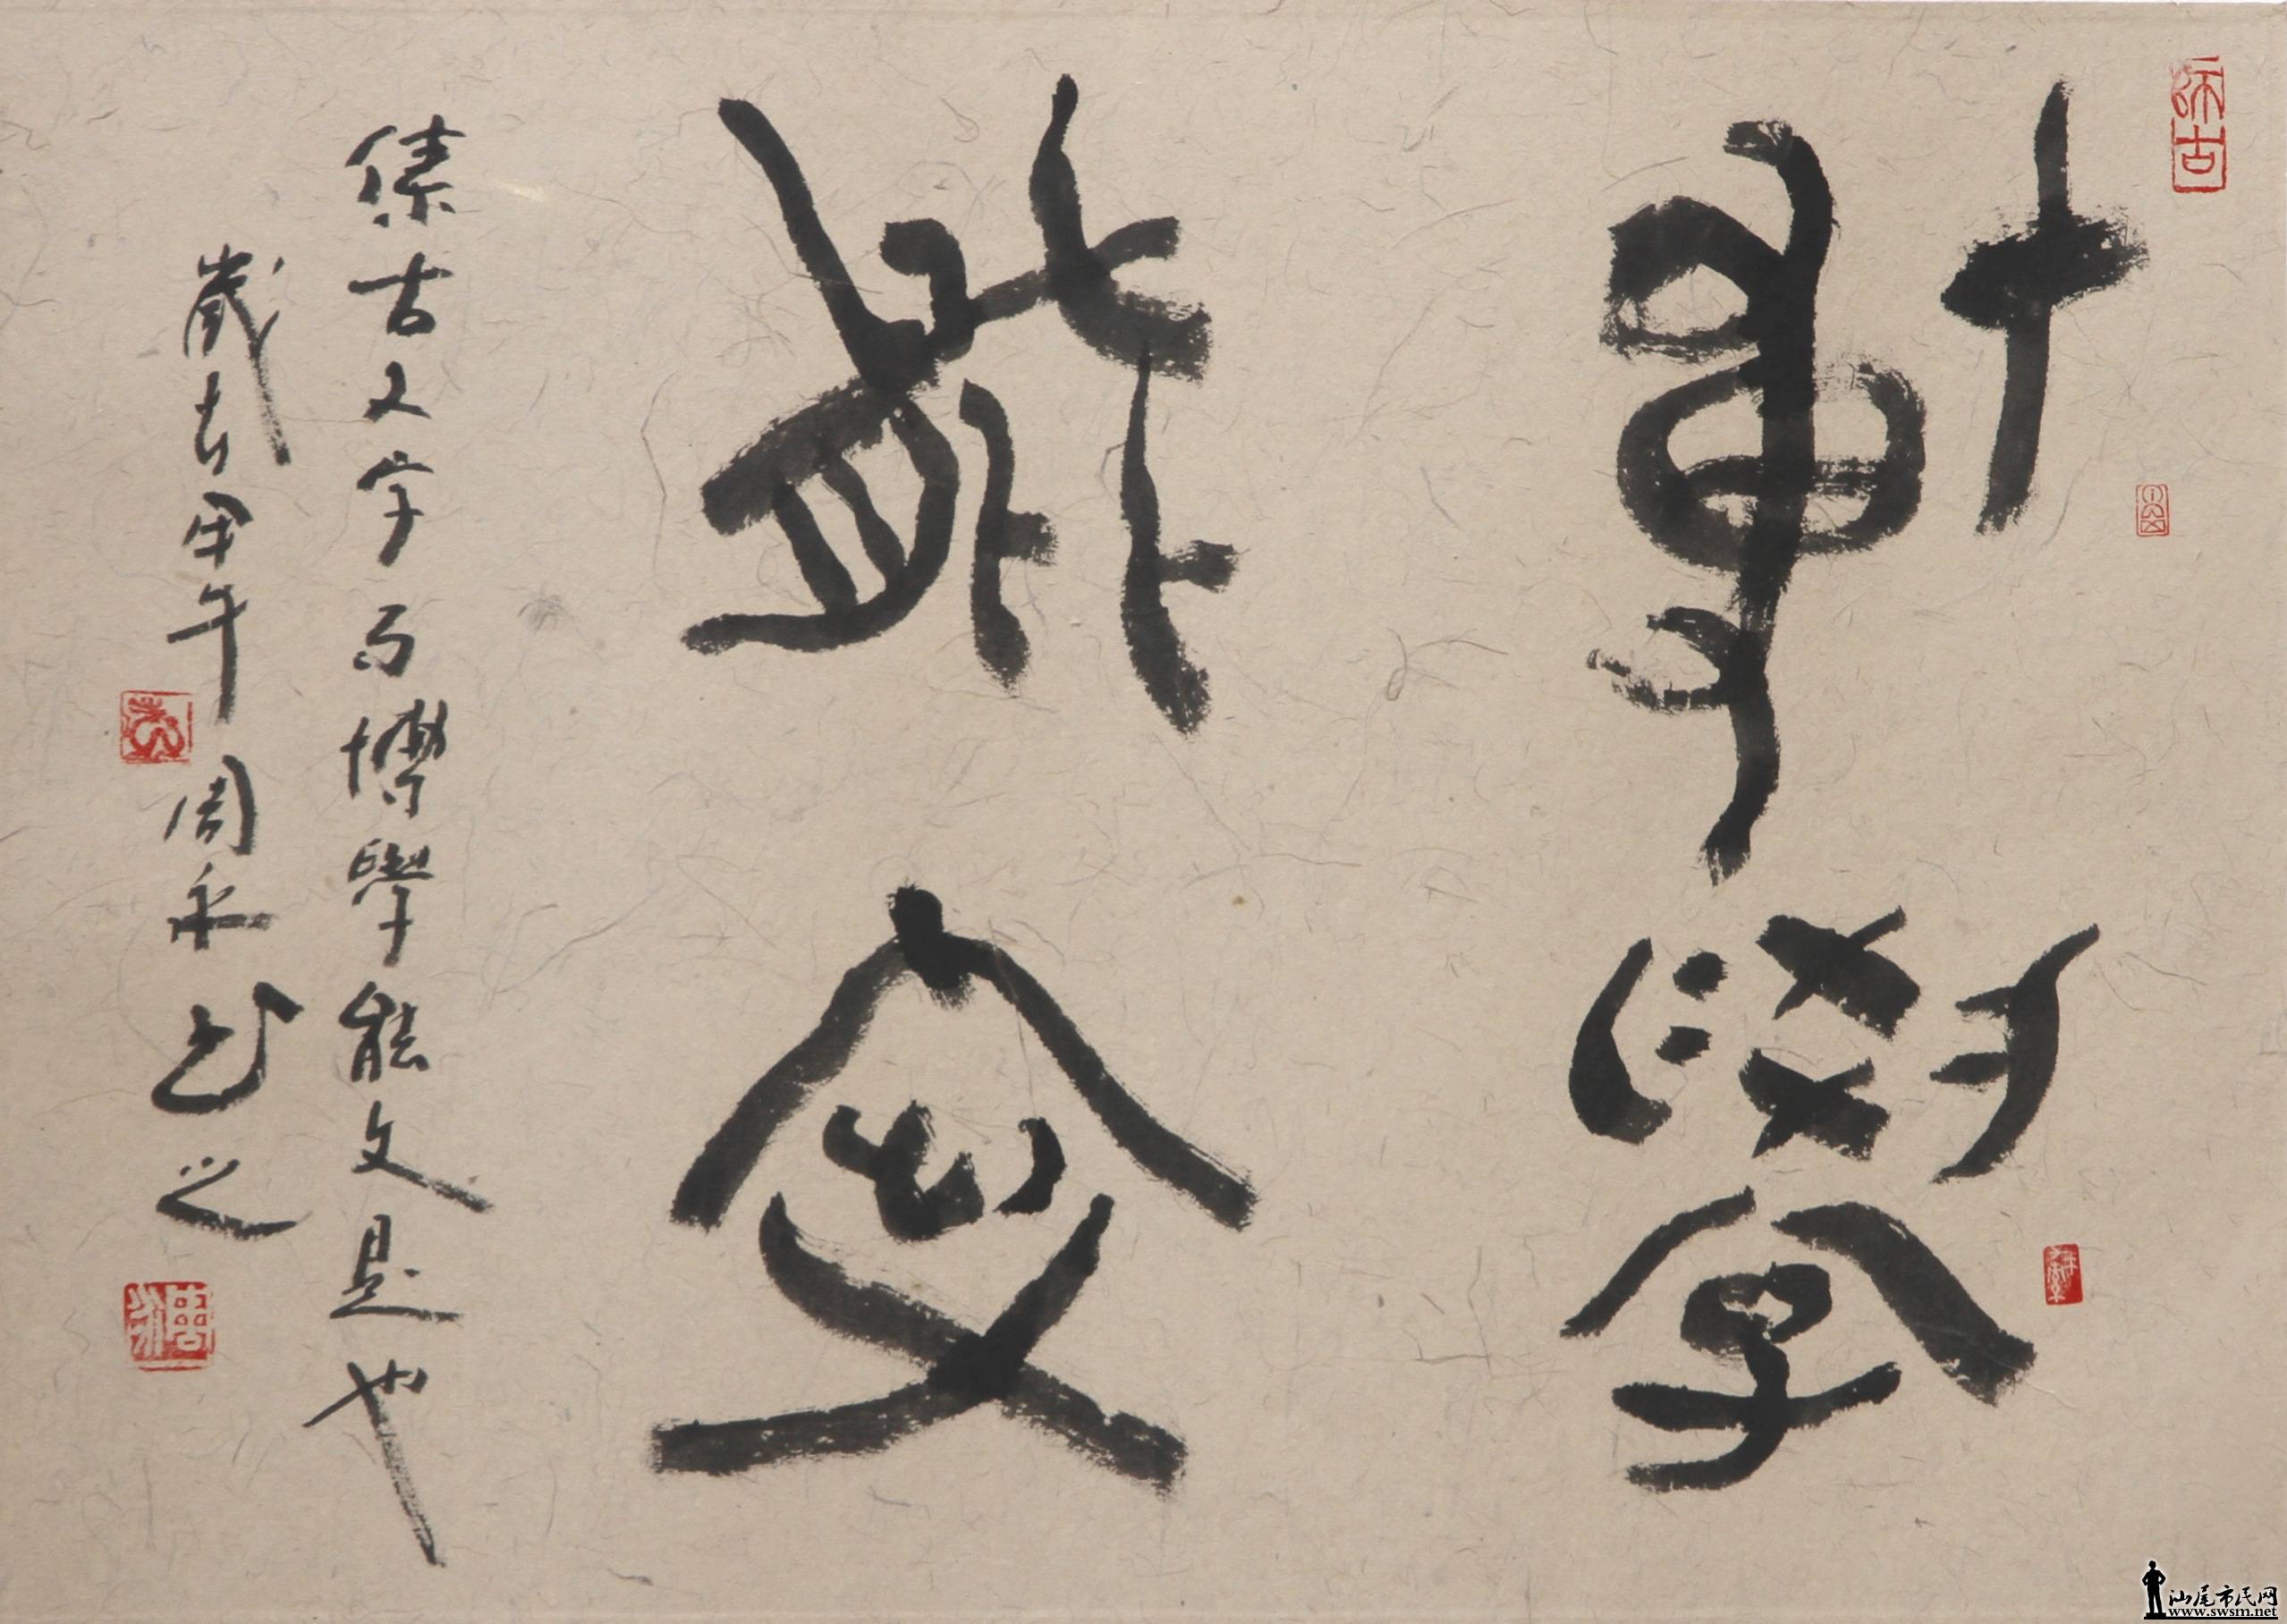 博學
能文
集古文字為博學能文是也
歲在甲午周永书之
師古
汕尾市民网
www.swsm.net